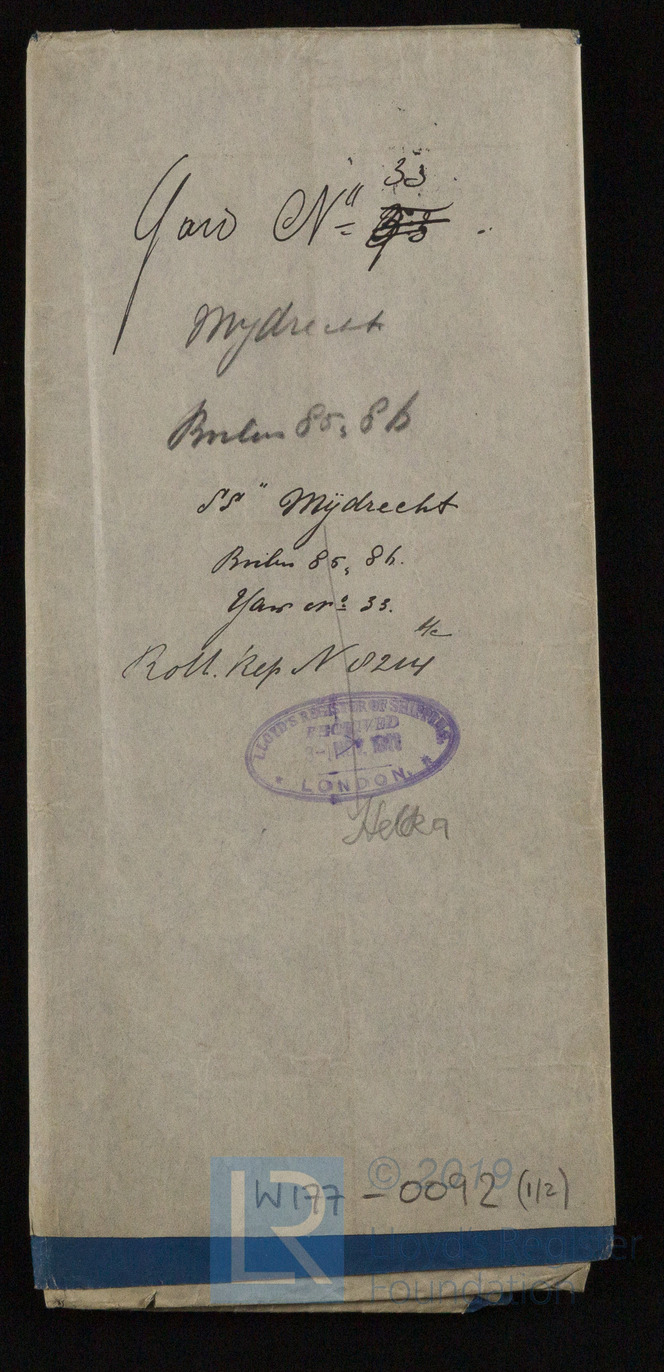 33
Yard Nº
Mydrecht
Boilers 85, 86
SS" Mijdrecht
Boilers 85, 86.
Yard Nº 33.
Rott. Rep N 8214
LLOYD'S REGISTER OF SHIPPING
RECEIVED
LONDON
© 2019
W177-0092 (1/2)
LR
Lloyd's Register
Foundation